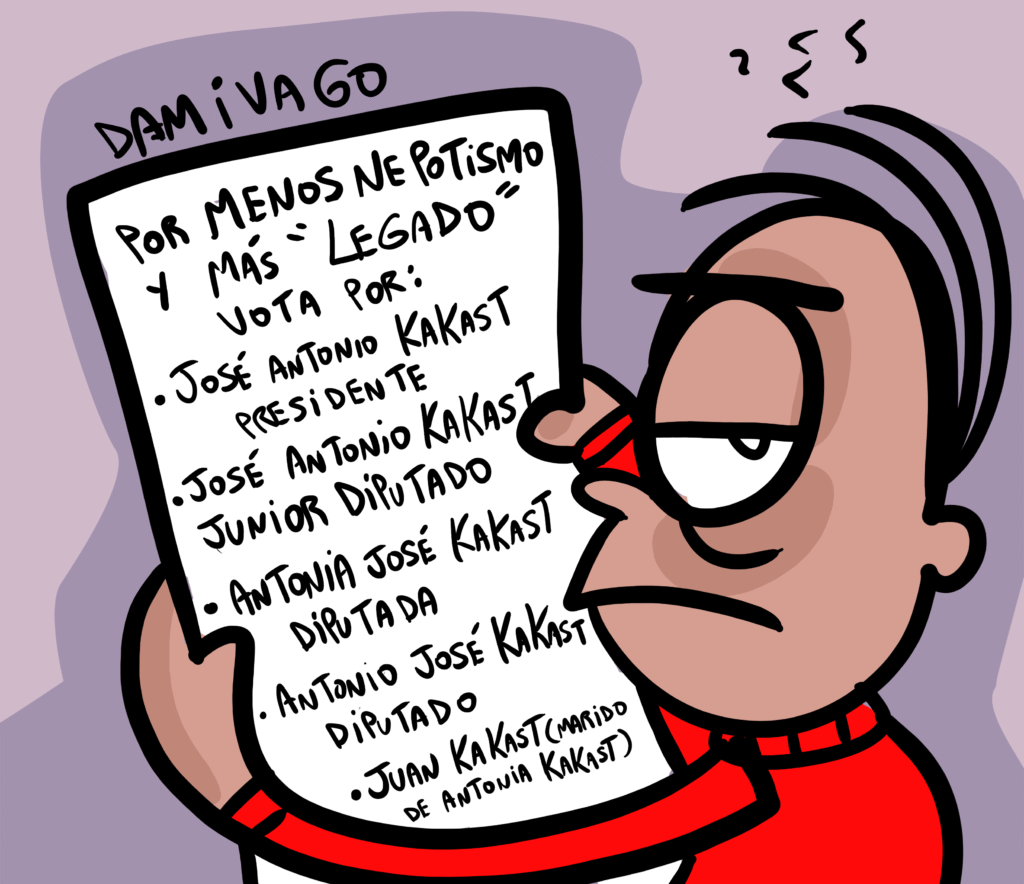 DAMIVAGO
POR MENOS NEPOTISMO
Y MÁS "LEGADO"
VOTA POR:
• JOSÉ ANTONIO KAKAST
PRESIDENTE
• JOSÉ ANTONIO KAKAST
JUNIOR DIPUTADO
• ANTONIA JOSÉ KAKAST
DIPUTADA
• ANTONIO JOSÉ KAKAST
DIPUTADO
• JUAN KAKAST (MARIDO
DE ANTONIA KAKAST)